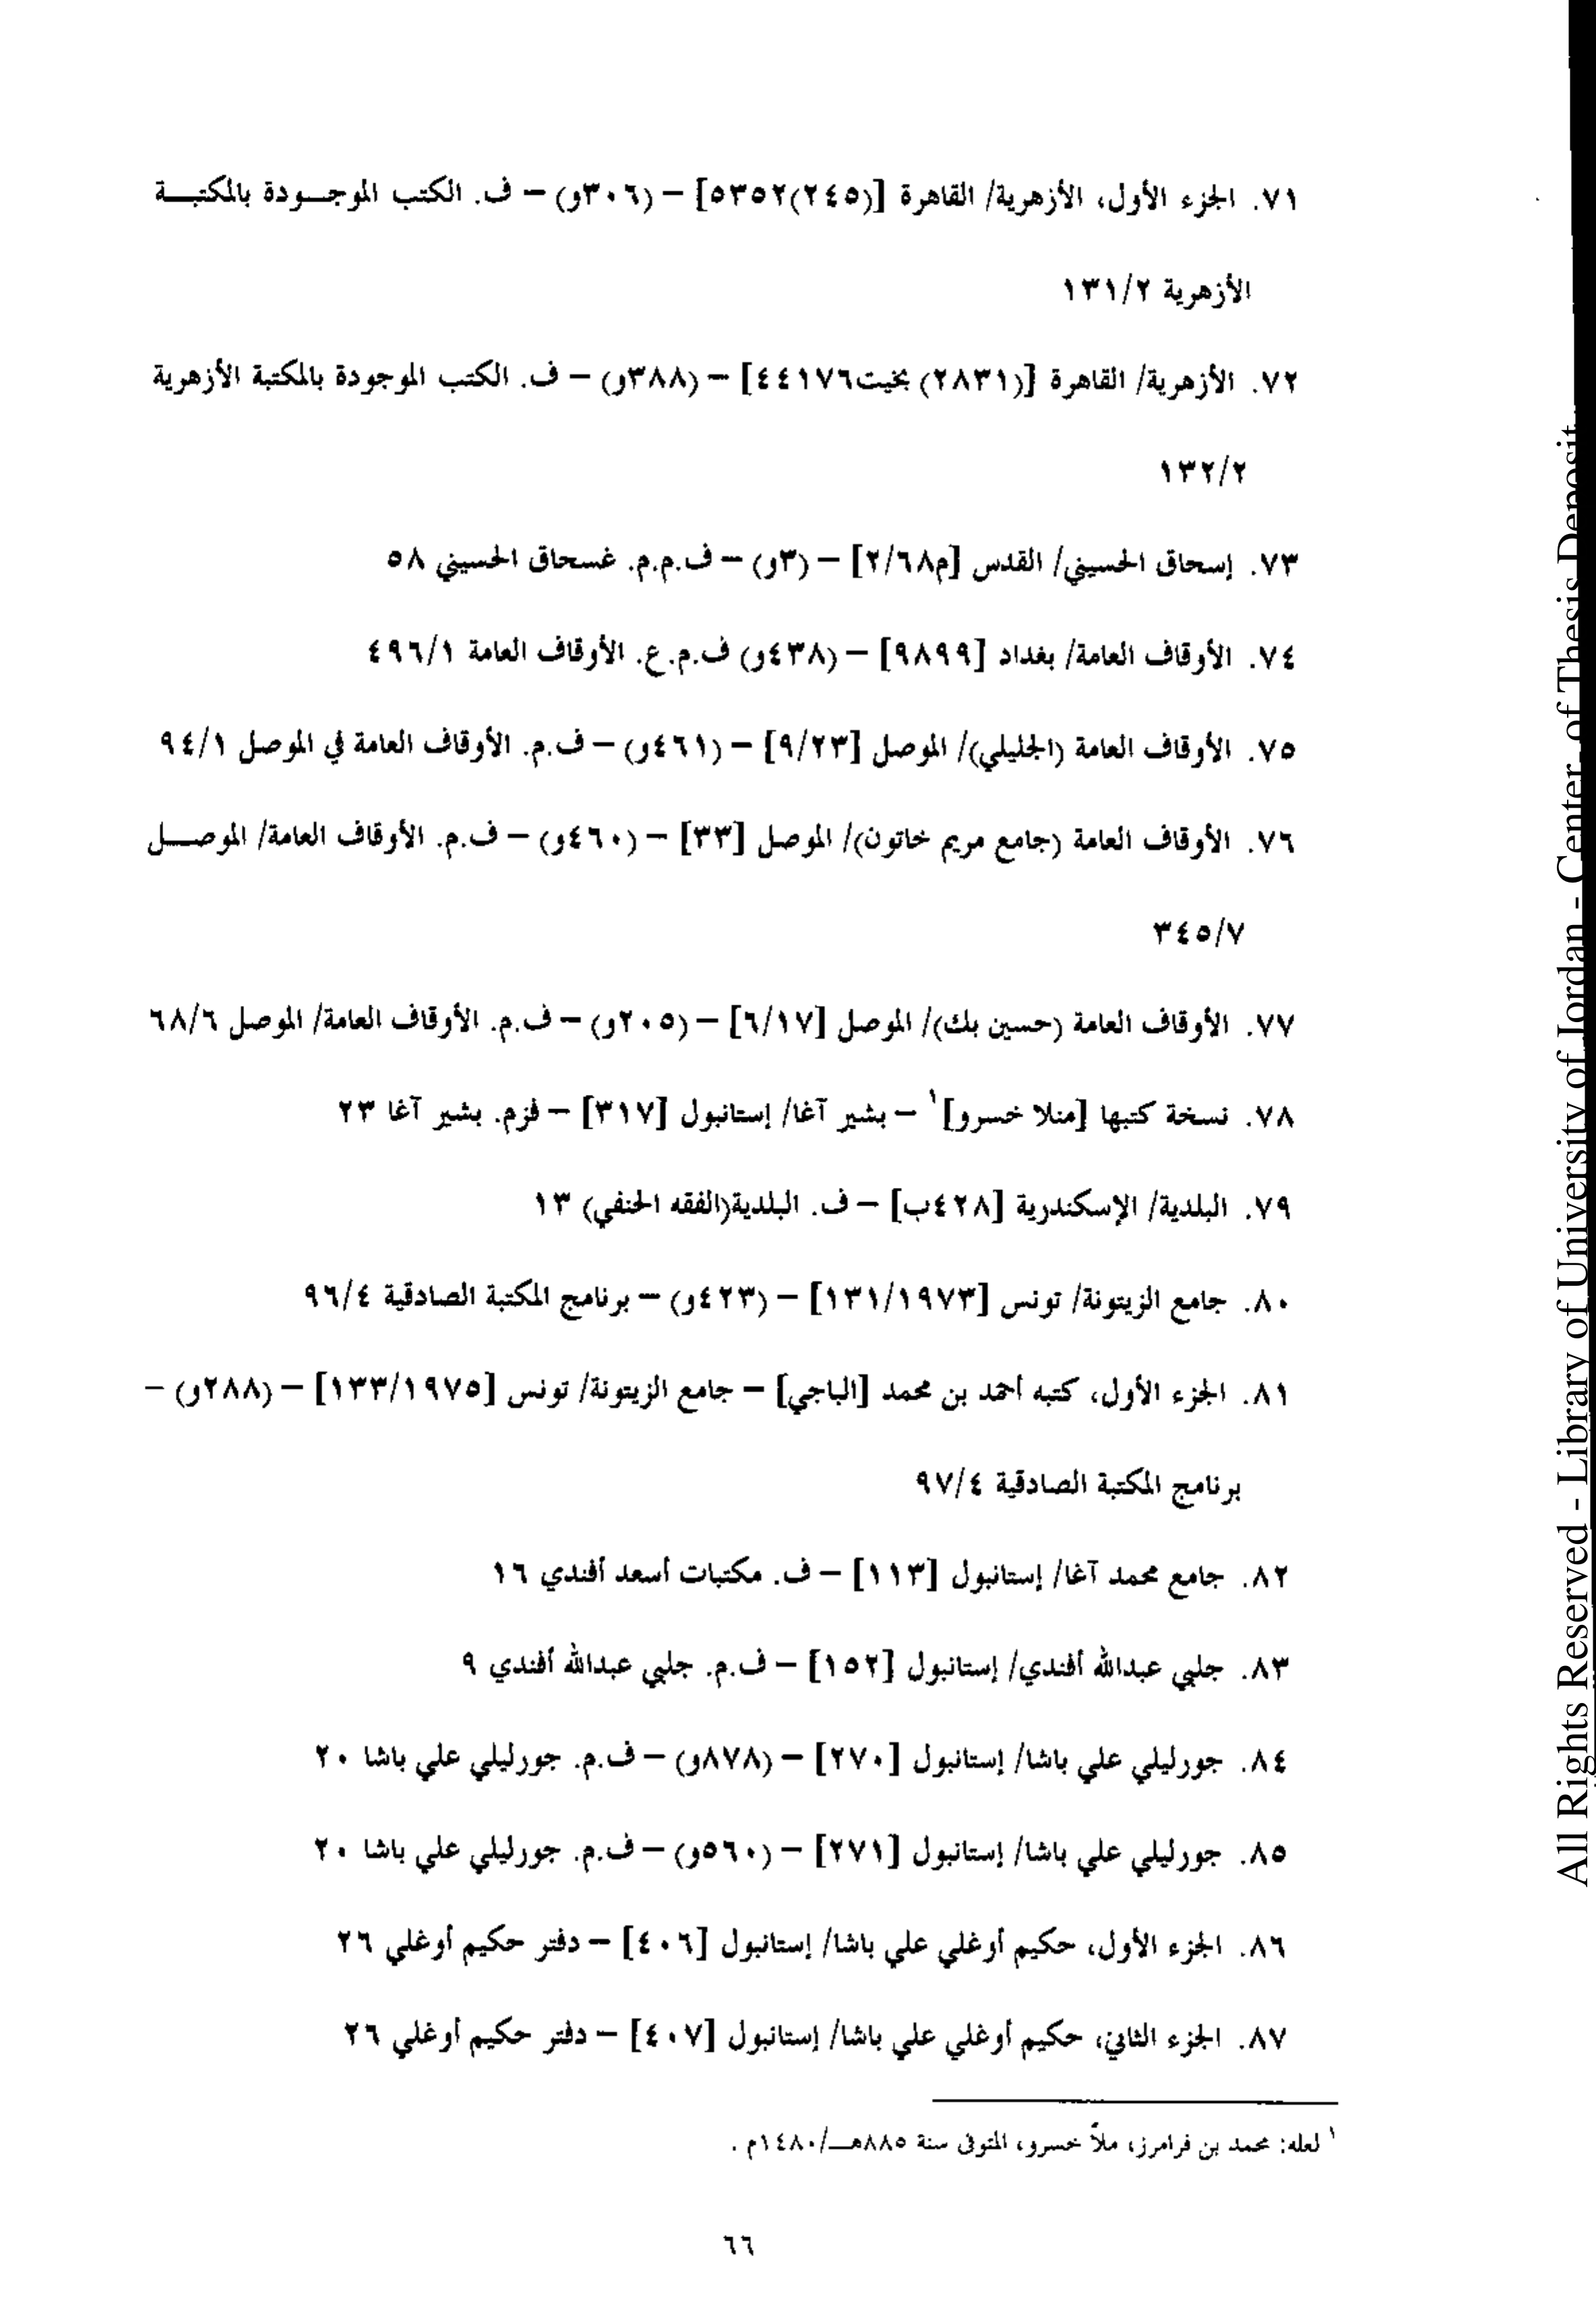 ٧١. الجزء الأول، الأزهرية/ القاهرة [(٢٤٥)٥٣٥٢] – (٣٠٦و) – ف. الكتب الموجودة بالمكتبة
الأزهرية ١٣١/٢
٧٢. الأزهرية/ القاهرة [(٢٨٣١) بخيت٤٤١٧٦] – (٣٨٨و) – ف. الكتب الموجودة بالمكتبة الأزهرية
١٣٢/٢
٧٣. إسحاق الحسيني/ القدس [م٢/٦٨] – (٣و) – ف.م.م. غسحاق الحسيني ٥٨
٧٤. الأوقاف العامة/ بغداد [٩٨٩٩] – (٤٣٨و) ف.م.ع. الأوقاف العامة ٤٩٦/١
٧٥. الأوقاف العامة (الجليلي)/ الموصل [٩/٢٣] – (٤٦١و) – ف.م. الأوقاف العامة في الموصل ٩٤/١
٧٦. الأوقاف العامة (جامع مريم خاتون)/ الموصل [٣٣] – (٤٦٠و) – ف.م. الأوقاف العامة/ الموصل
٣٤٥/٧
٧٧. الأوقاف العامة (حسين بك)/ الموصل [٦/١٧] – (٢٠٥و) – ف.م. الأوقاف العامة/ الموصل ٦٨/٦
٧٨. نسخة كتبها [منلا خسرو]١ – بشير آغا/ إستانبول [٣١٧] – فزم. بشير آغا ٢٣
٧٩. البلدية/ الإسكندرية [٤٢٨ب] – ف. البلدية(الفقه الحنفي) ١٣
٨٠. جامع الزيتونة/ تونس [١٣١/١٩٧٣] – (٤٢٣و) – برنامج المكتبة الصادقية ٩٦/٤
٨١. الجزء الأول، كتبه أحمد بن محمد [الباجي] – جامع الزيتونة/ تونس [١٣٣/١٩٧٥] – (٢٨٨و) –
برنامج المكتبة الصادقية ٩٧/٤
٨٢. جامع محمد آغا/ إستانبول [١١٣] – ف. مكتبات أسعد أفندي ١٦
٨٣. جلبي عبدالله أفندي/ إستانبول [١٥٢] – ف.م. جلبي عبدالله أفندي ٩
٨٤. جورليلي علي باشا/ إستانبول [٢٧٠] – (٨٧٨و) – ف.م. جورليلي علي باشا ٢٠
٨٥. جورليلي علي باشا/ إستانبول [٢٧١] – (٥٦٠و) – ف.م. جورليلي علي باشا ٢٠
٨٦. الجزء الأول، حكيم أوغلي علي باشا/ إستانبول [٤٠٦] – دفتر حكيم أوغلي ٢٦
٨٧. الجزء الثاني، حكيم أوغلي علي باشا/ إستانبول [٤٠٧] – دفتر حكيم أوغلي ٢٦
١ لعله: محمد بن فرامرز، ملاّ خسرو، المتوفى سنة ٨٨٥هـ/١٤٨٠م .
٦٦
All Rights Reserved - Library of University of Jordan - Center of Thesis Deposit